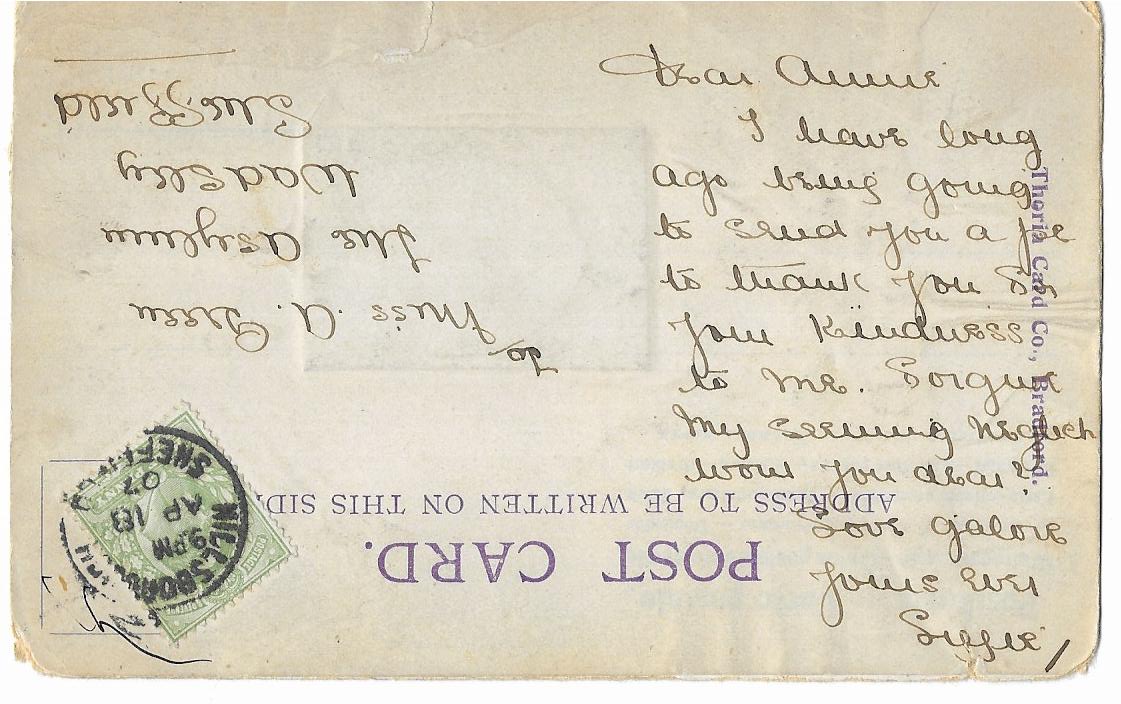 Dear Annie
I have long
ago being going
to send you a pc
to thank you for
your Kindness
to me. Forgive
My seeming Neglect
wont you dear?
Love galore
yours Ever
To/
Miss. A. Green
The Asylum
Wadsley
Sheffield
POST CARD.
ADDRESS TO BE WRITTEN ON THIS SIDE.
Thoria Card Co., Bradford.
HILLSBOROUGH
9 PM
AP 18
07
SHEFFIELD